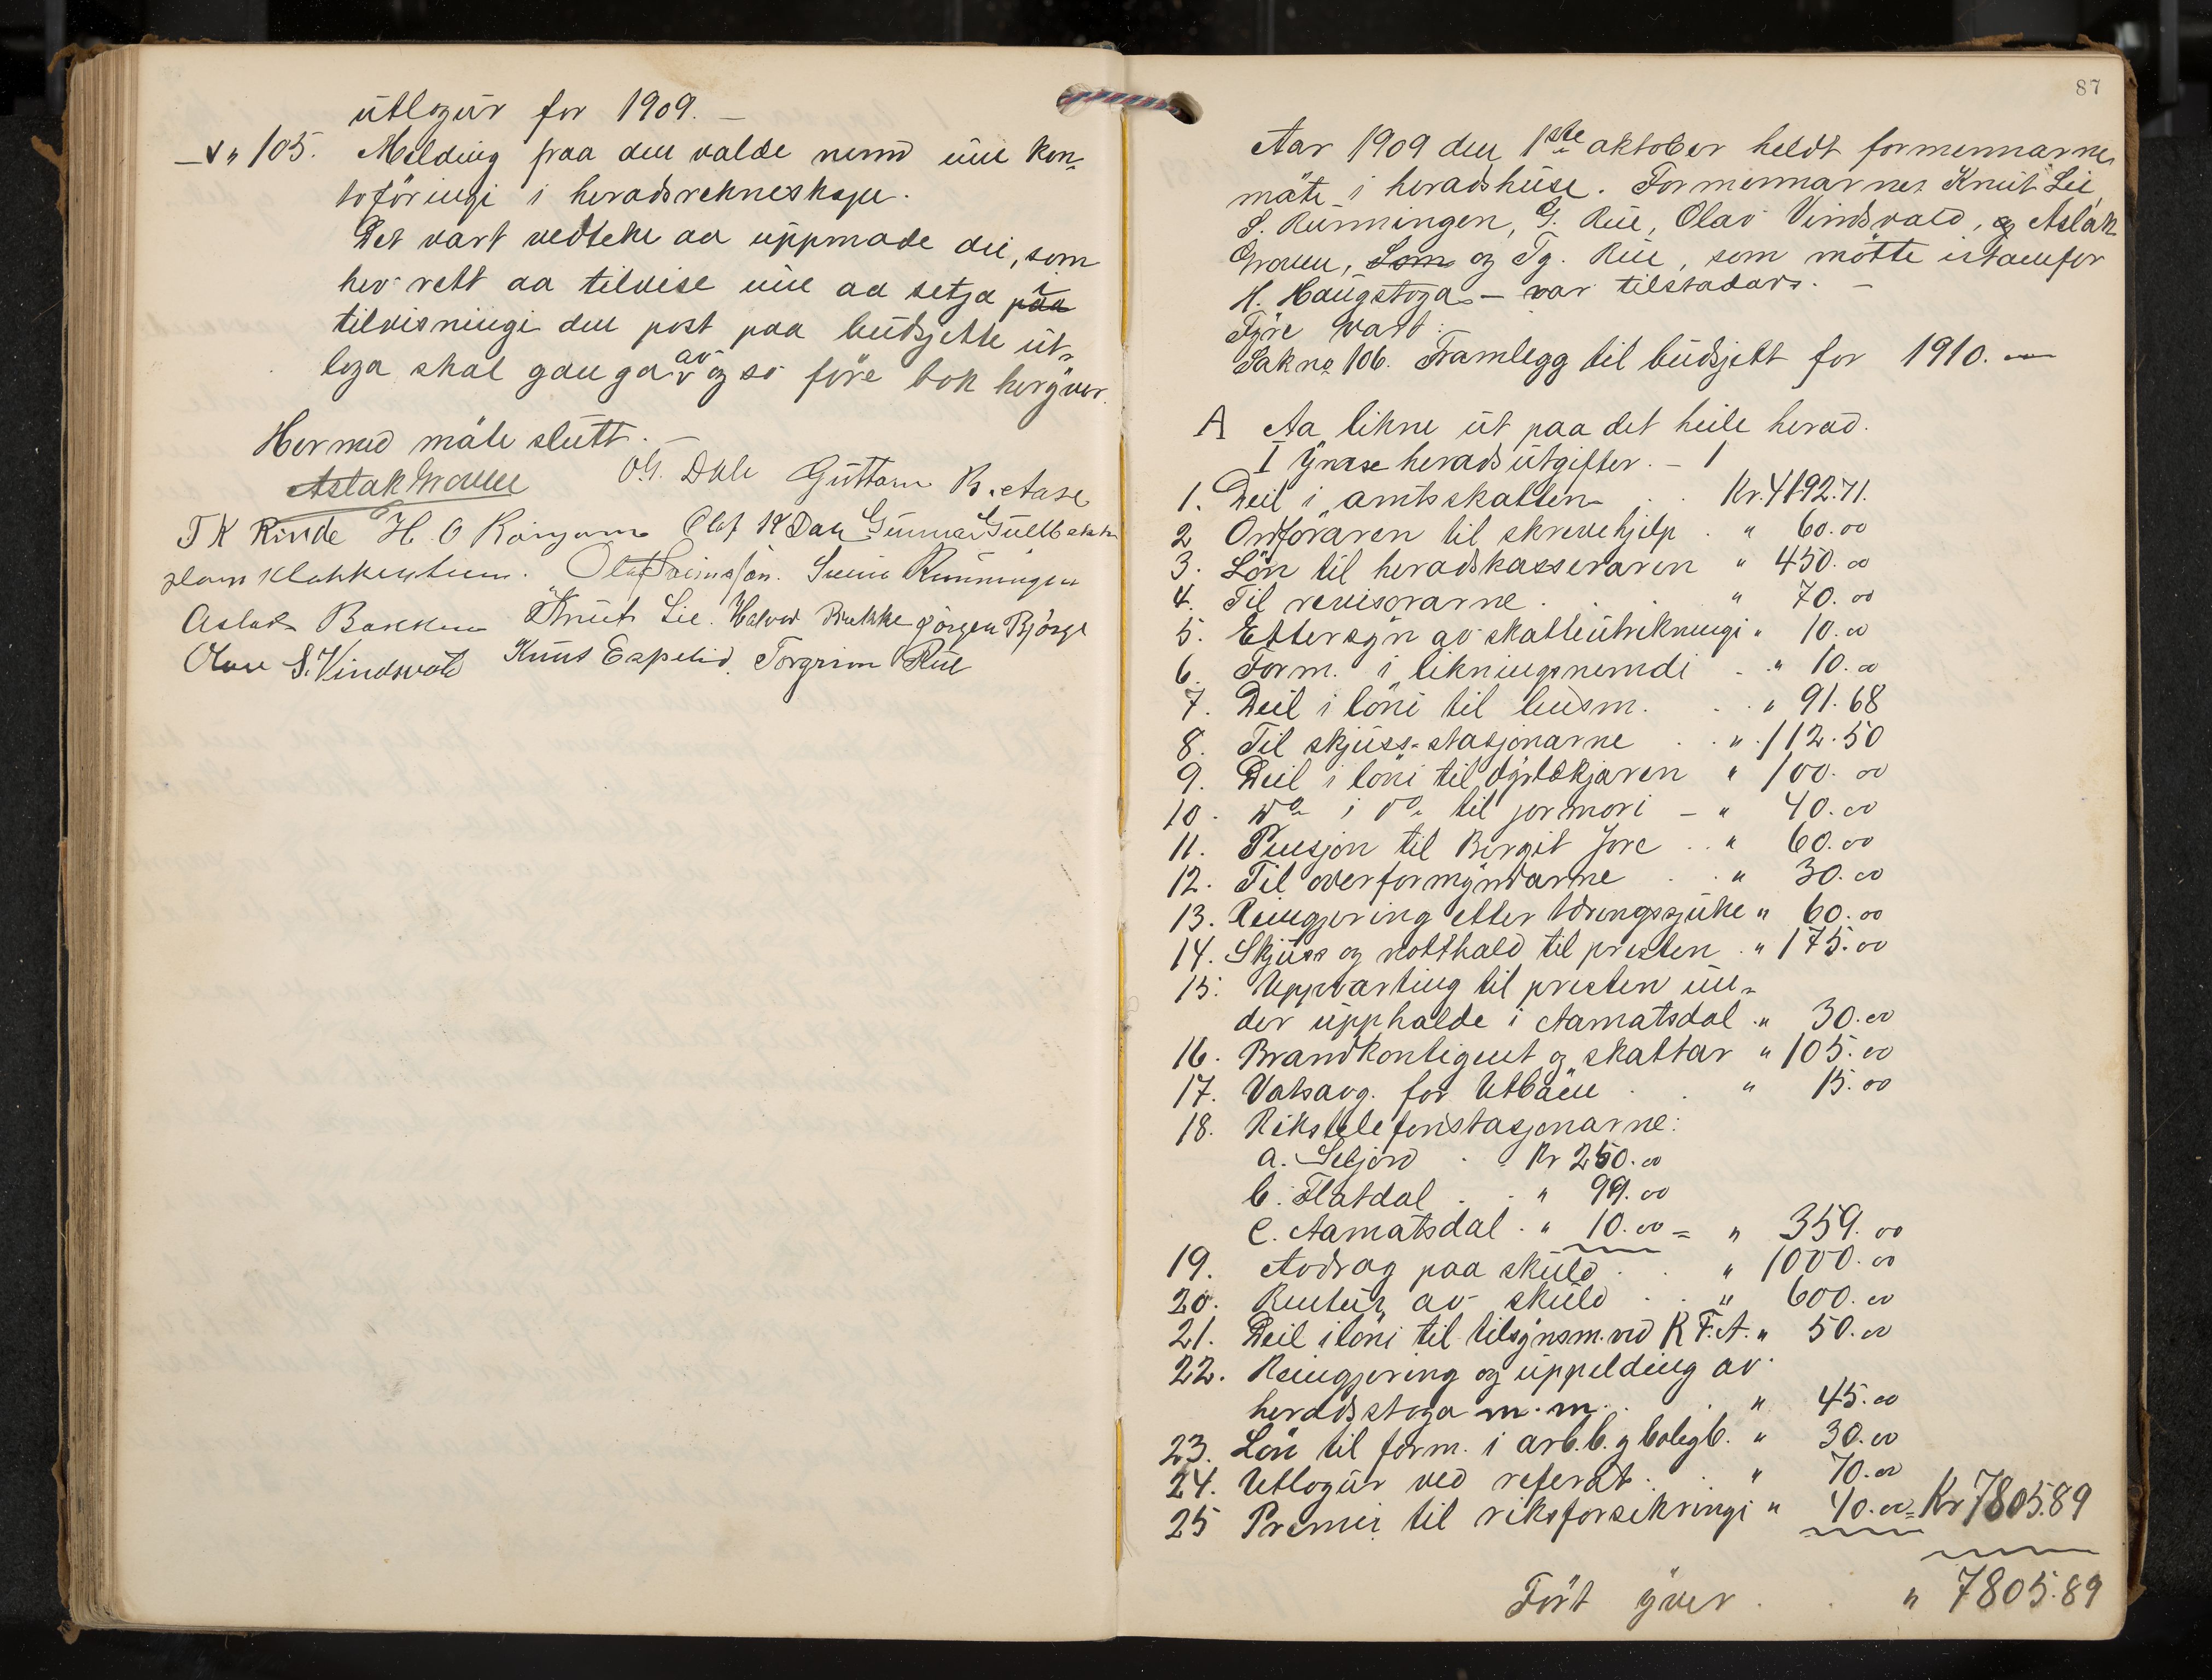 utlogur for 1909. —
—v„ 105. Melding paa den valde nemnd um kon-
toföringi i heradsrekneskapen.
Det vart vedteke aa uppmode dei, som
hev rett aa tilvise um aa setja paa i
tilvisningi den post paa budsjette ut-
loga skal ganga av og so före bok heryver.
Hermed möte slutt. —
Aslak Graven O.G. Dale Guttorm B. Aase
T K Rinde H. O Olaf K Dale Gunnar
Klokkarstuen. Olaf Svein Runningen
Aslak Bakken Knut Lie. Halvor Brekke Jörgen Björge
Olav S. Vindsvald Knut Espelid. Torgrim Rue
87
Aar 1909 den 1ste oktober heldt formennarne
möte i heradshuse. Formennarne Knut Lie,
S. Runningen, G. Rue, Olav Vindsvald, og Aslak
Graven, Som og Tg. Rue, som mötte istaenfor
H. Haugstoga — var tilstadars. —
Fyre vart:
Sak no 106. Framlegg til budsjett for 1910. —
A Aa likne ut paa det heile herad.
I Ymse heradsutgifter. —
1. Deil i amtsskatten . . Kr. 4192.71.
2 Ordföraren til skrivehjelp . " 60.00
3. Lön til heradskasseraren " 450.00
4. Til revisorarne . . " 70.00
5. Ettersyn av skatteutrekningi " 10.00
6. Form. i likningsnemdi . . " 10.00
7. Deil i löni til lensm. . . " 91.68
8. Til skjuss-stasjonarne . . " 112.50
9. Deil i löni til dyrlækjaren " 100.00
10. Do i do til jormori — " 40.00
11. Pensjon til Borgit Jore . . " 60.00
12. Til overformyndarne . . " 30.00
13. Reingjering etter tæringssjuke " 60.00
14. Skjuss og notthald til presten . " 175.00
15. Uppvarting til presten un-
der upphalde i Aamatsdal . " 30.00
16. Brandkontigent og skattar " 105.00
17. Vatsavg. for Utbøen . . " 15.00
18. Rikstelefonstasjonarne:
a. Seljord . . Kr 250.00
b. Flatdal . . " 99.00
c. Aamatsdal . " 10.00 = " 359.00
19. Avdrag paa skuld . . " 1000.00
20. Rentur av skuld . . " 600.00
21. Deil i löni til tilsynsm. ved K.F.A. " 50.00
22. Reingjering og uppelding av
heradsstoga m.m. . . " 45.00
23. Lön til form. i arb.b. og boligb. " 30.00
24. Utlogur ved referat . . " 70.00
25 Premie til riksforsikringi " 40.00 = Kr 7805.89
Fört yver . . " 7805.89